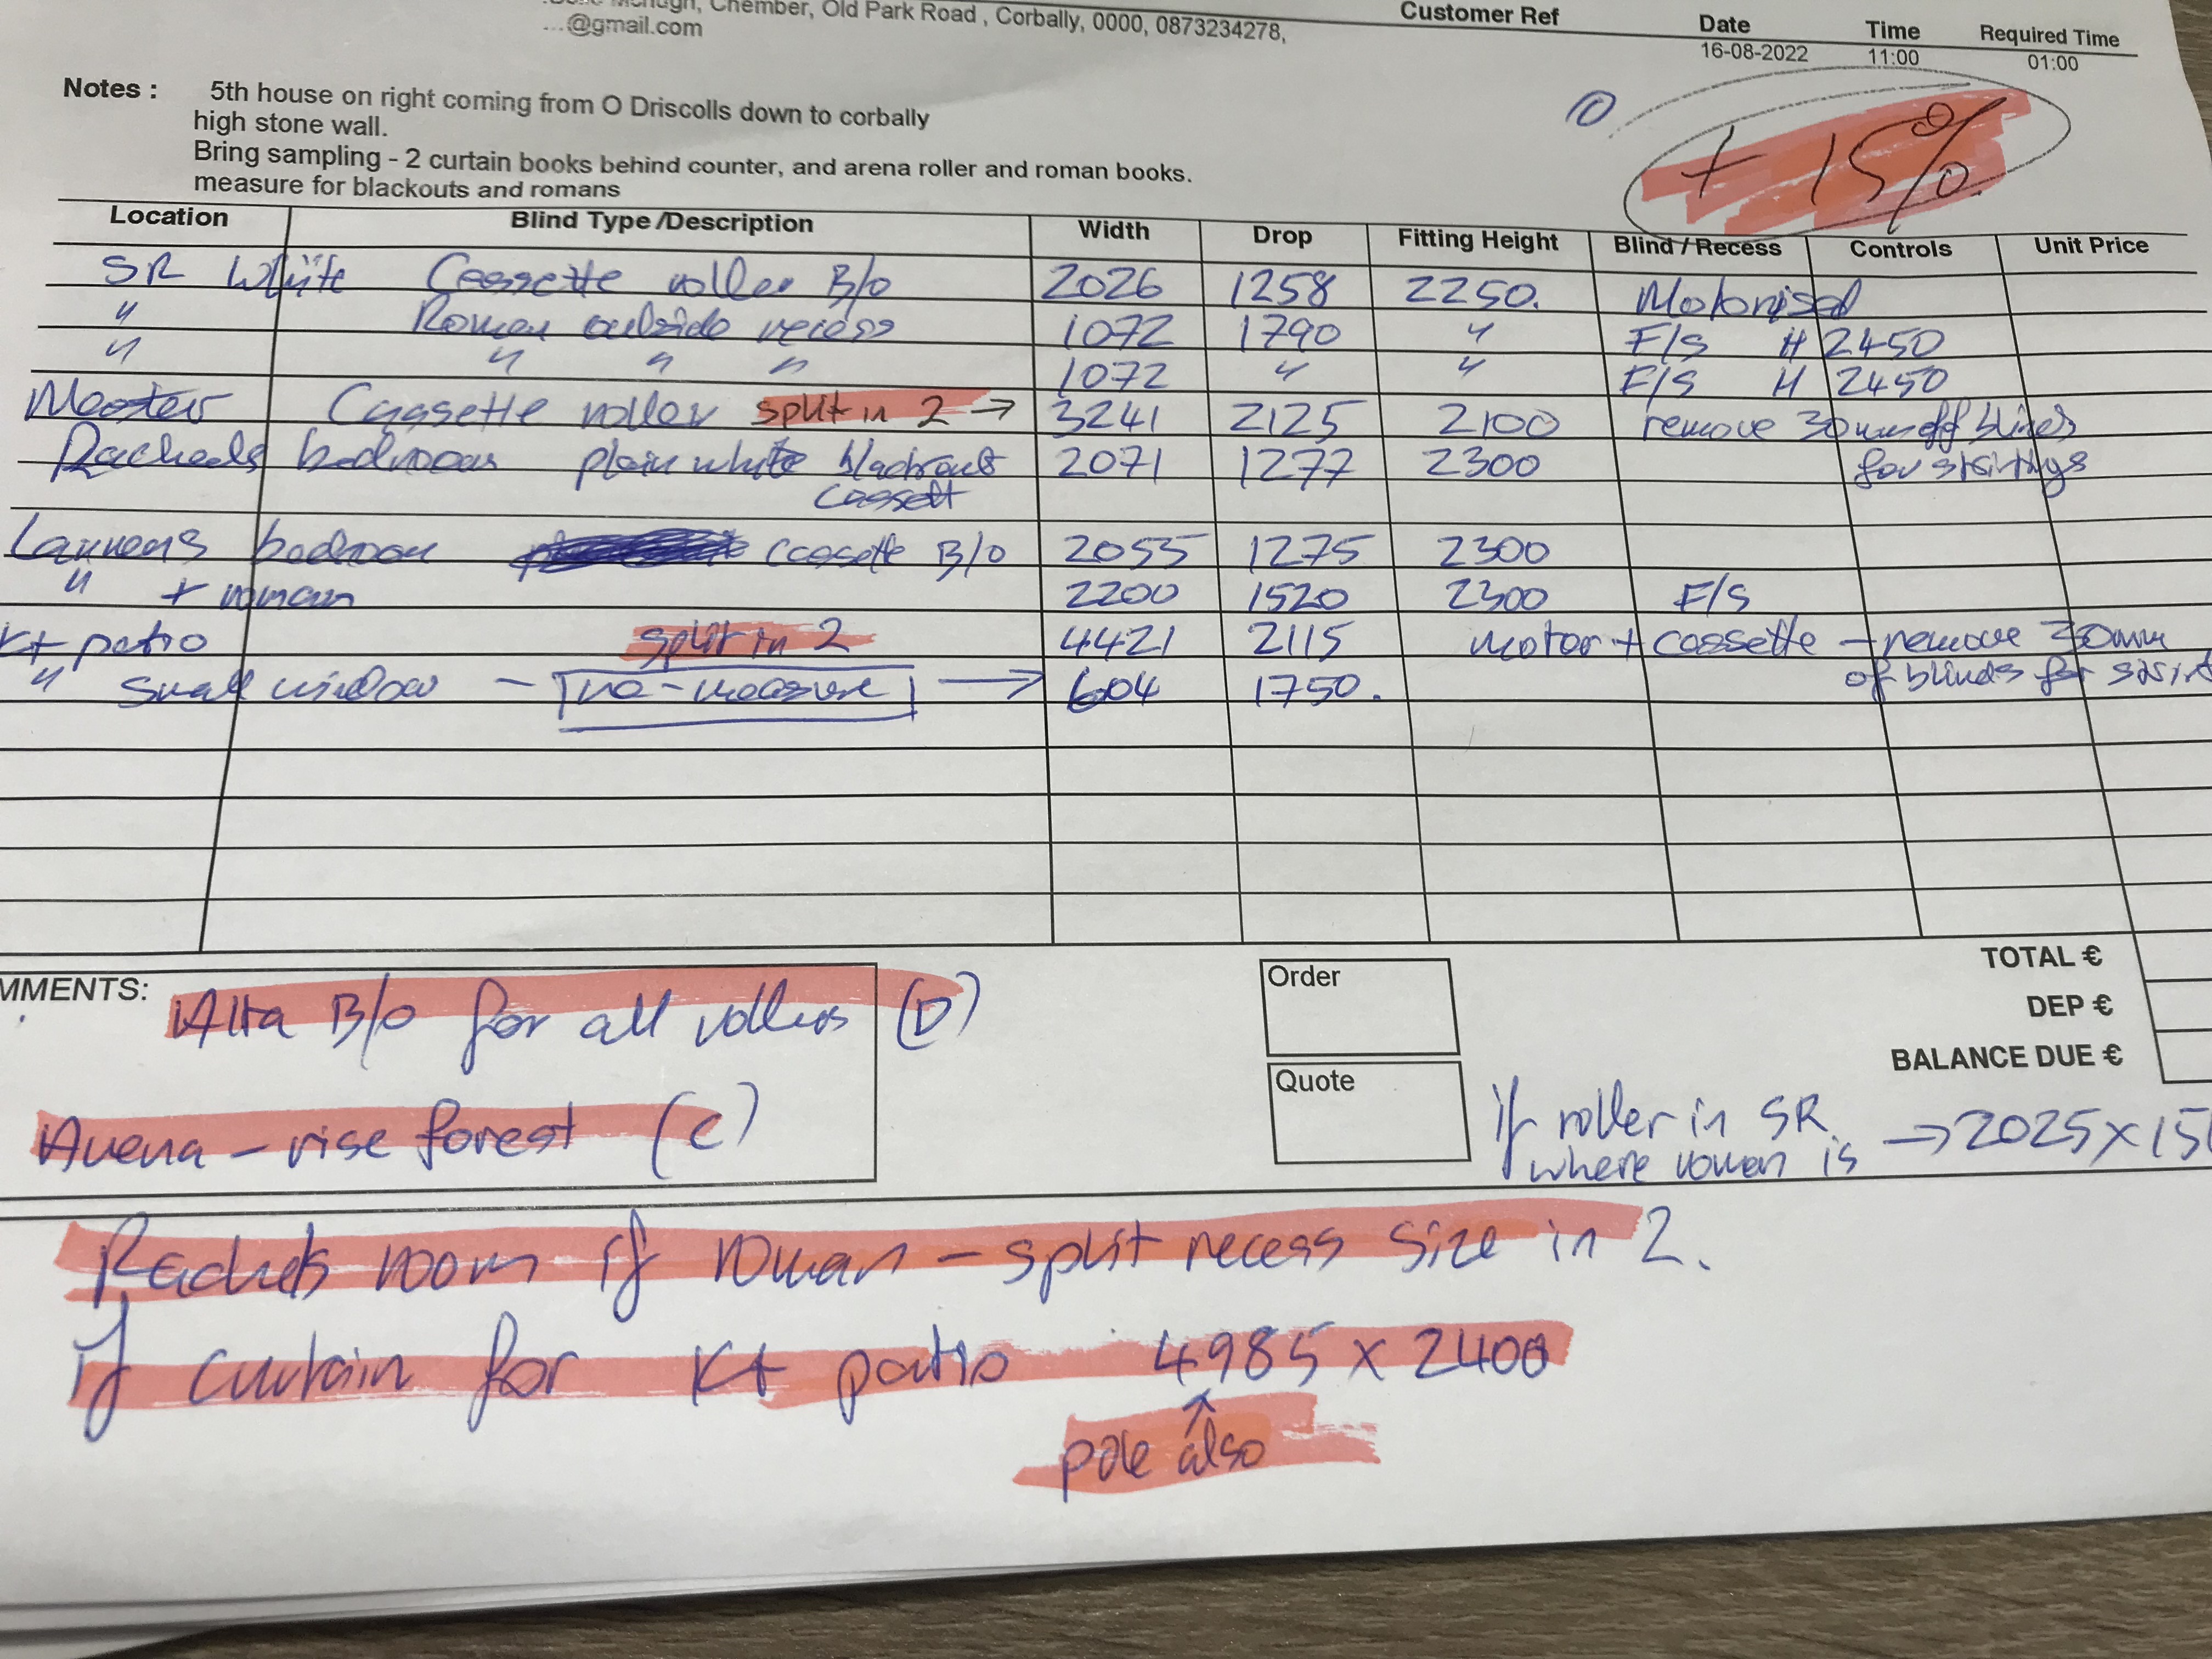 McHugh, Chember, Old Park Road , Corbally, 0000, 0873234278,
...@gmail.com
Customer Ref
Date Time Required Time
16-08-2022 11:00 01:00
+ 15%
Notes : 5th house on right coming from O Driscolls down to corbally
high stone wall.
Bring sampling - 2 curtain books behind counter, and arena roller and roman books.
measure for blackouts and romans
Location Blind Type /Description Width Drop Fitting Height Blind / Recess Controls Unit Price
SR White Cassette roller B/o 2026 1258 2250. Motorised
" Roman outside recess 1072 1790 " F/S H 2450
" " " " 1072 " " F/S H 2450
Master Cassette roller split in 2 → 3241 2125 2100 remove 30mm off blinds
Racheals bedroom plain white blackout 2071 1277 2300 for
cassett
Laurens bedroom cassette B/o 2055 1275 2300
" + roman 2200 1520 2300 F/S
Kt patio split in 2 4421 2115 motor + cassette - remove 30mm
of blinds for
" small window - re-measure → 604 1750.
MMENTS:
Alta B/o for all rollers (D)
Arena - rise forest (c)
Order
Quote
TOTAL €
DEP €
BALANCE DUE €
if roller in SR
where roman is → 2025 x 15
Rachels room if roman - split recess size in 2.
If curtain for Kt patio 4985 x 2400
↑
pole also